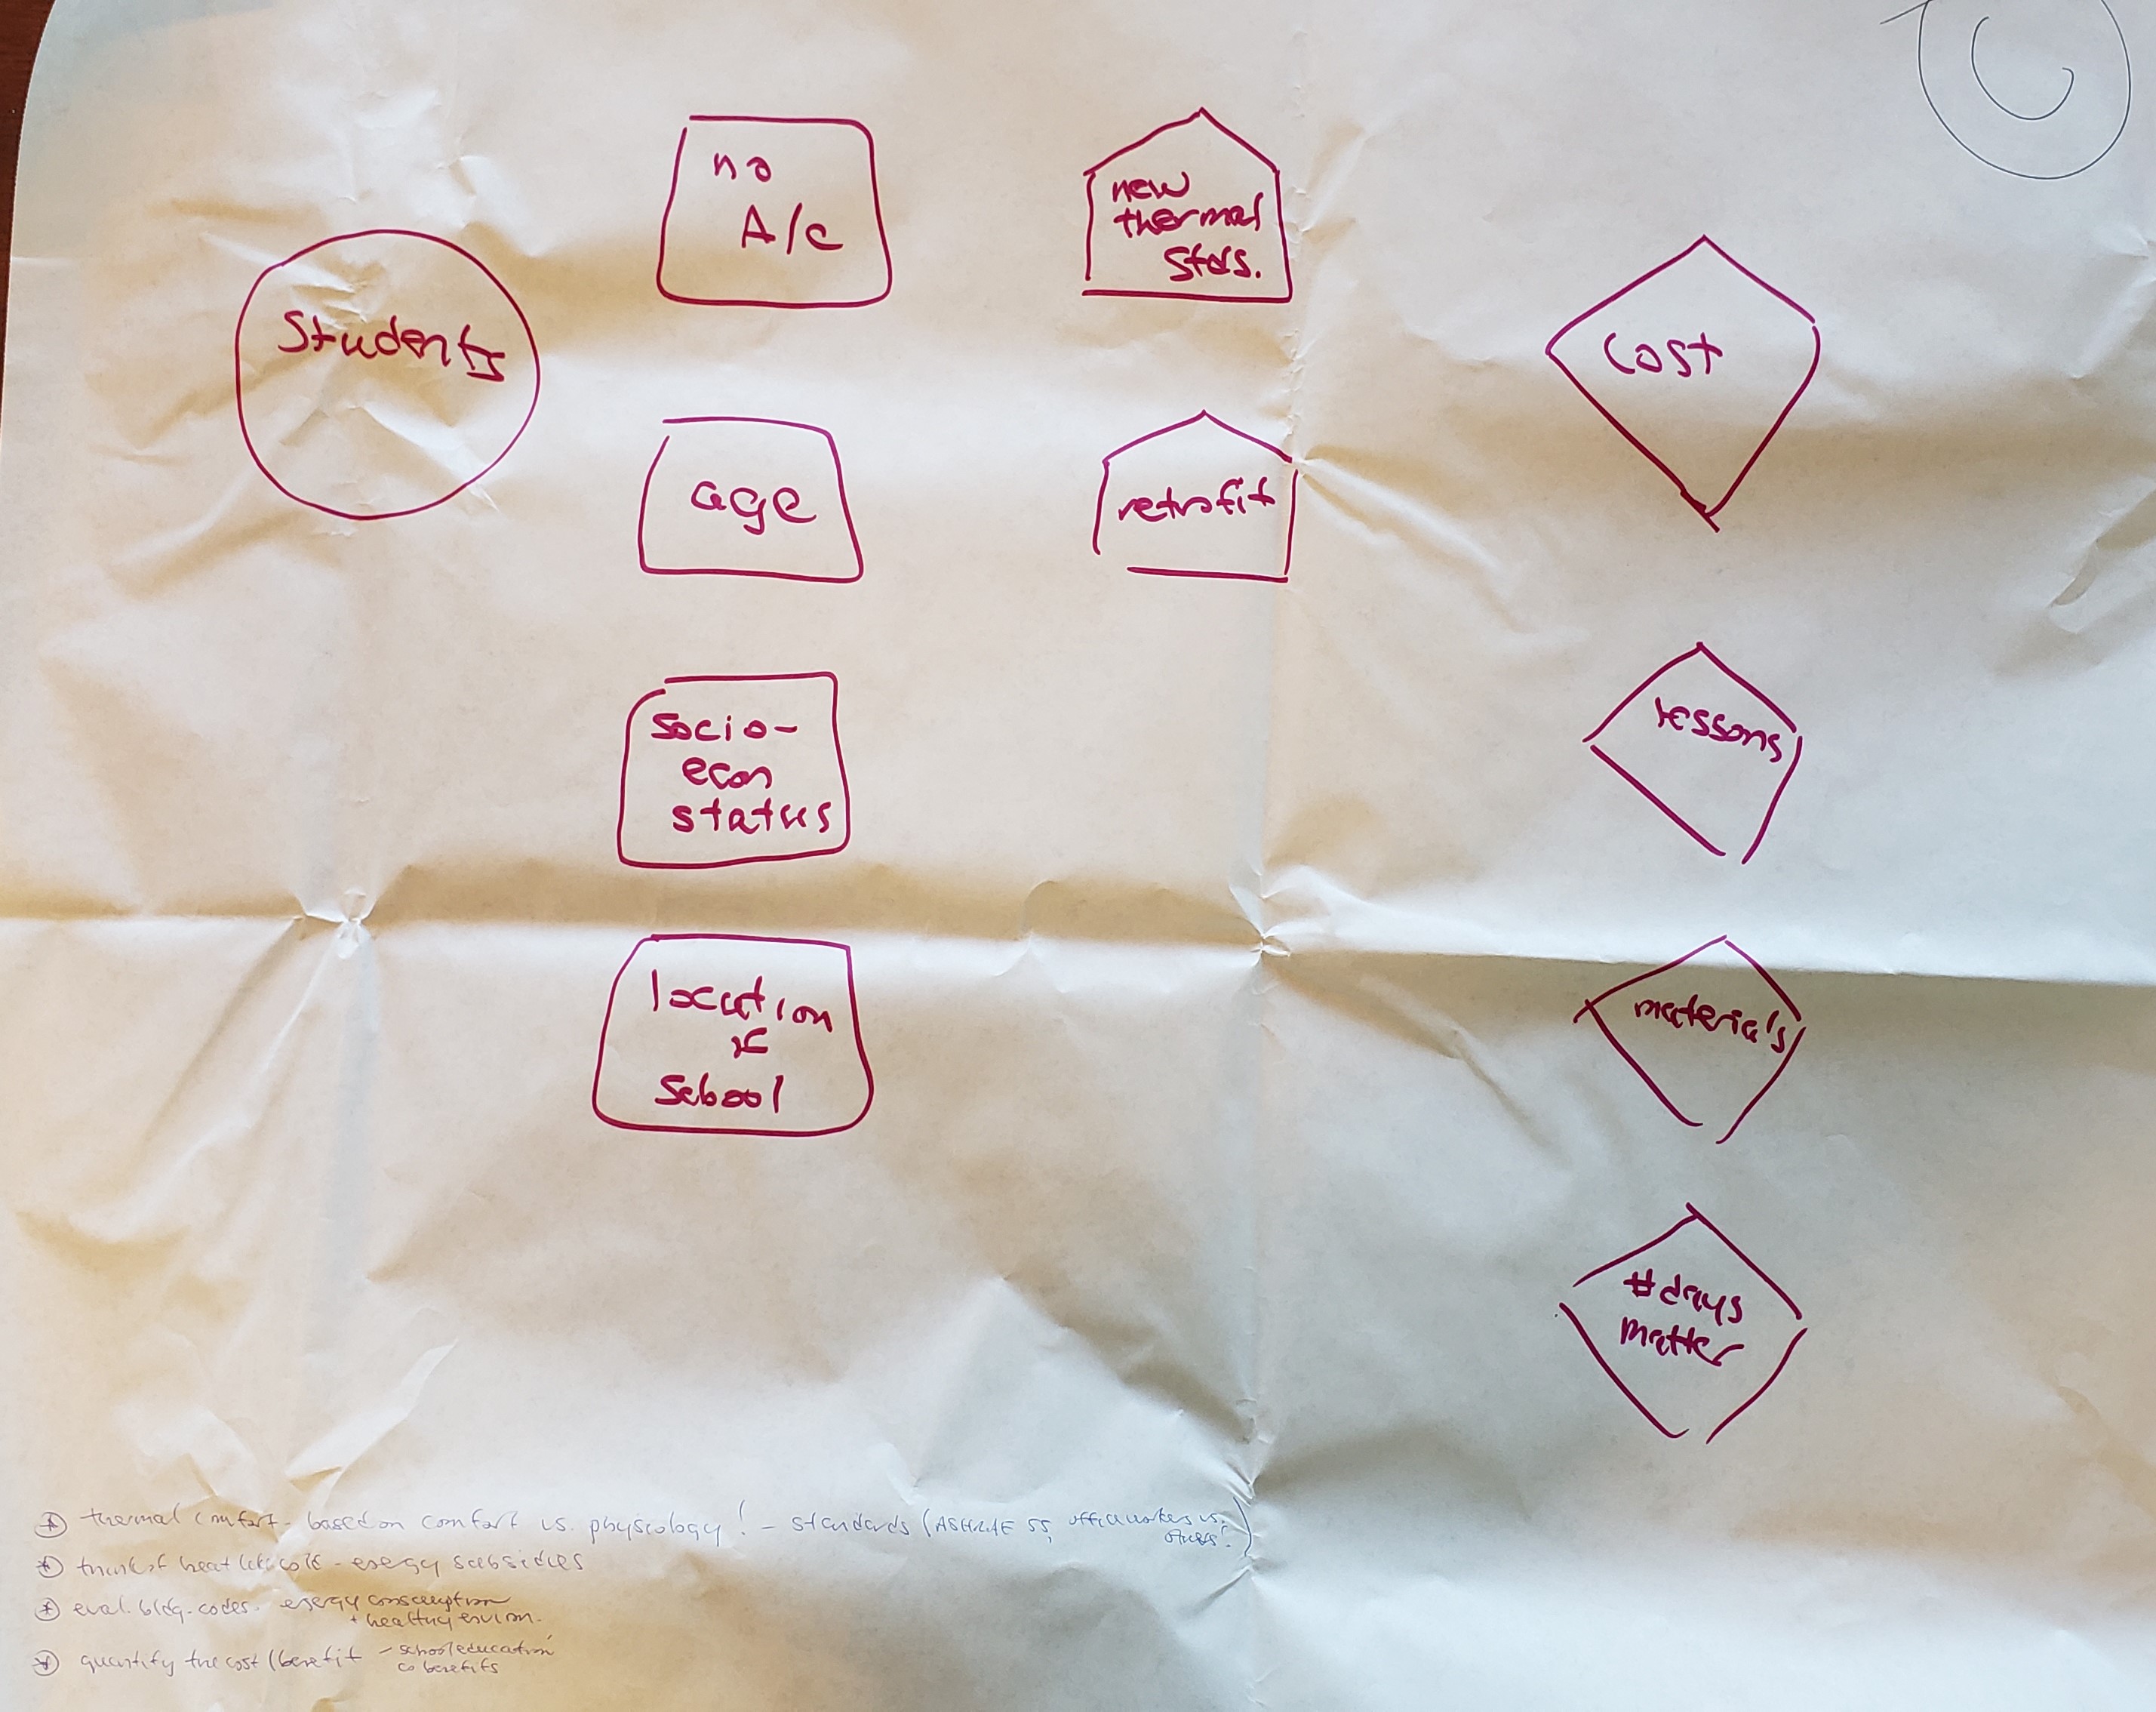 Students
no
A/c
age
socio-
econ
status
location
of
school
new
thermal
stds.
retrofit
cost
lessons
materials
# days
matter
thermal comfort - based on comfort vs. physiology! - standards (ASHRAE 55, office workers vs.
others?)
think of heat like cold - energy subsidies
eval. bldg. codes - energy consumption
+ healthy environ.
quantify the cost/benefit - school education
co benefits